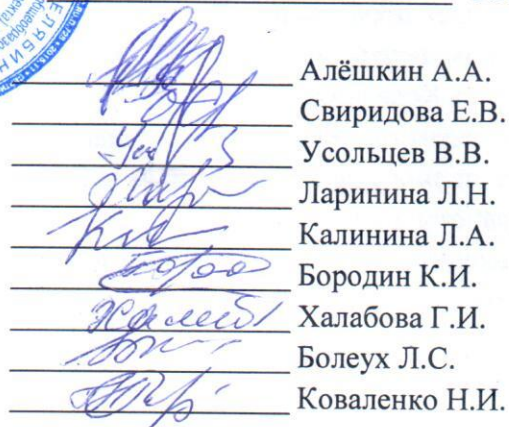 Алёшкин А.А.
Свиридова Е.В.
Усольцев В.В.
Ларинина Л.Н.
Калинина Л.А.
Бородин К.И.
Халабова Г.И.
Болеух Л.С.
Коваленко Н.И.